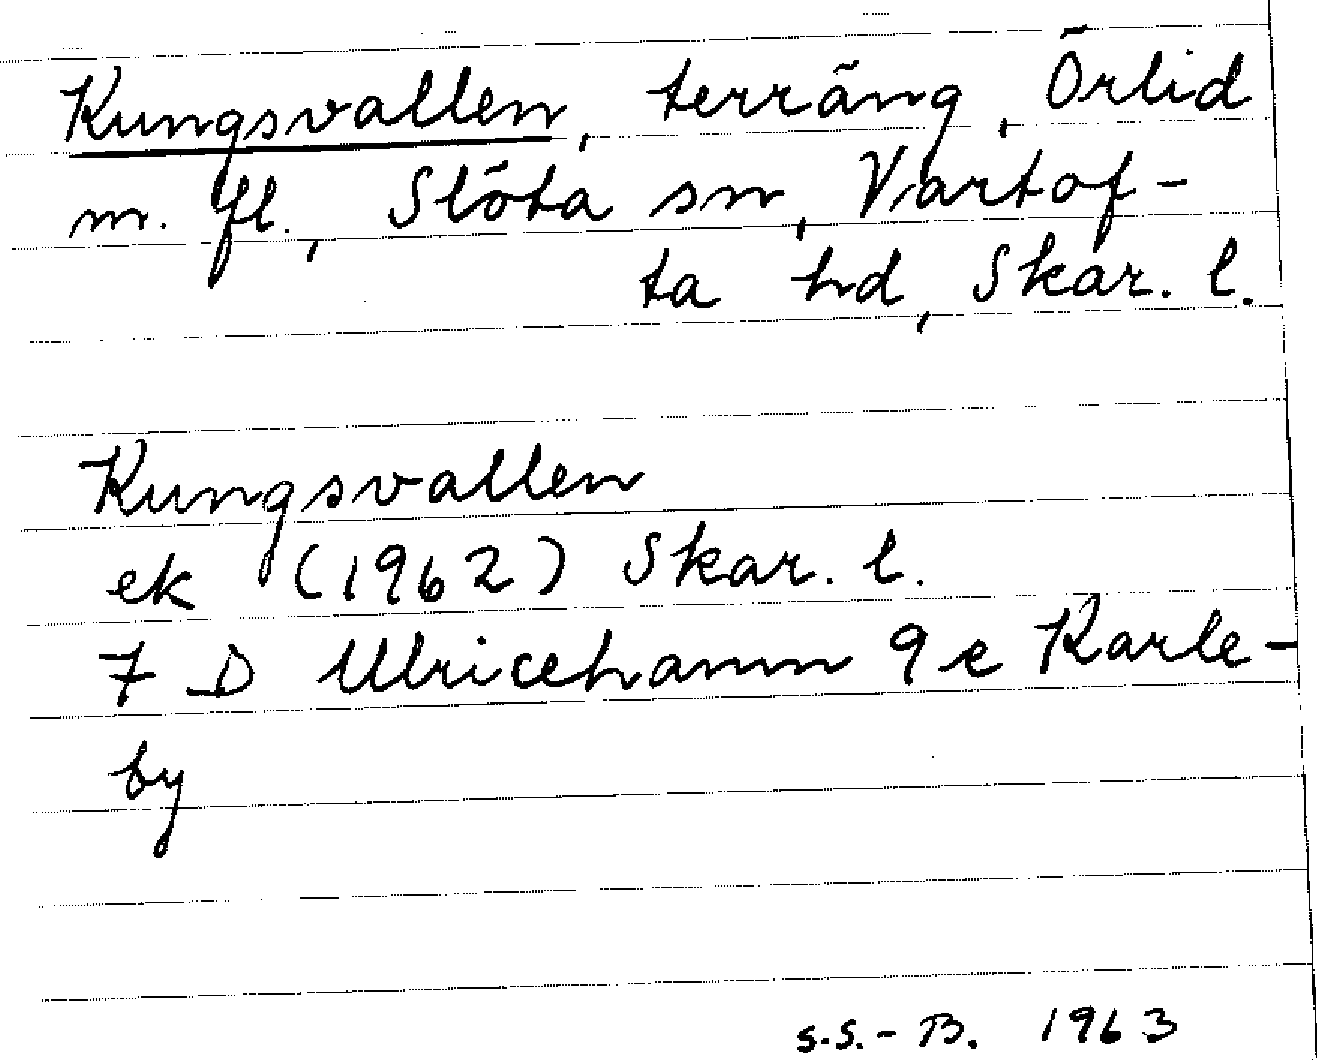 Kungsvallen, terräng, Örlid
m. fl., Slöta sn, Vartof-
ta hd, Skar. l.
Kungsvallen
ek (1962) Skar. l.
7 D Ulricehamn 9 e Karle-
by
S.S.-B. 1963